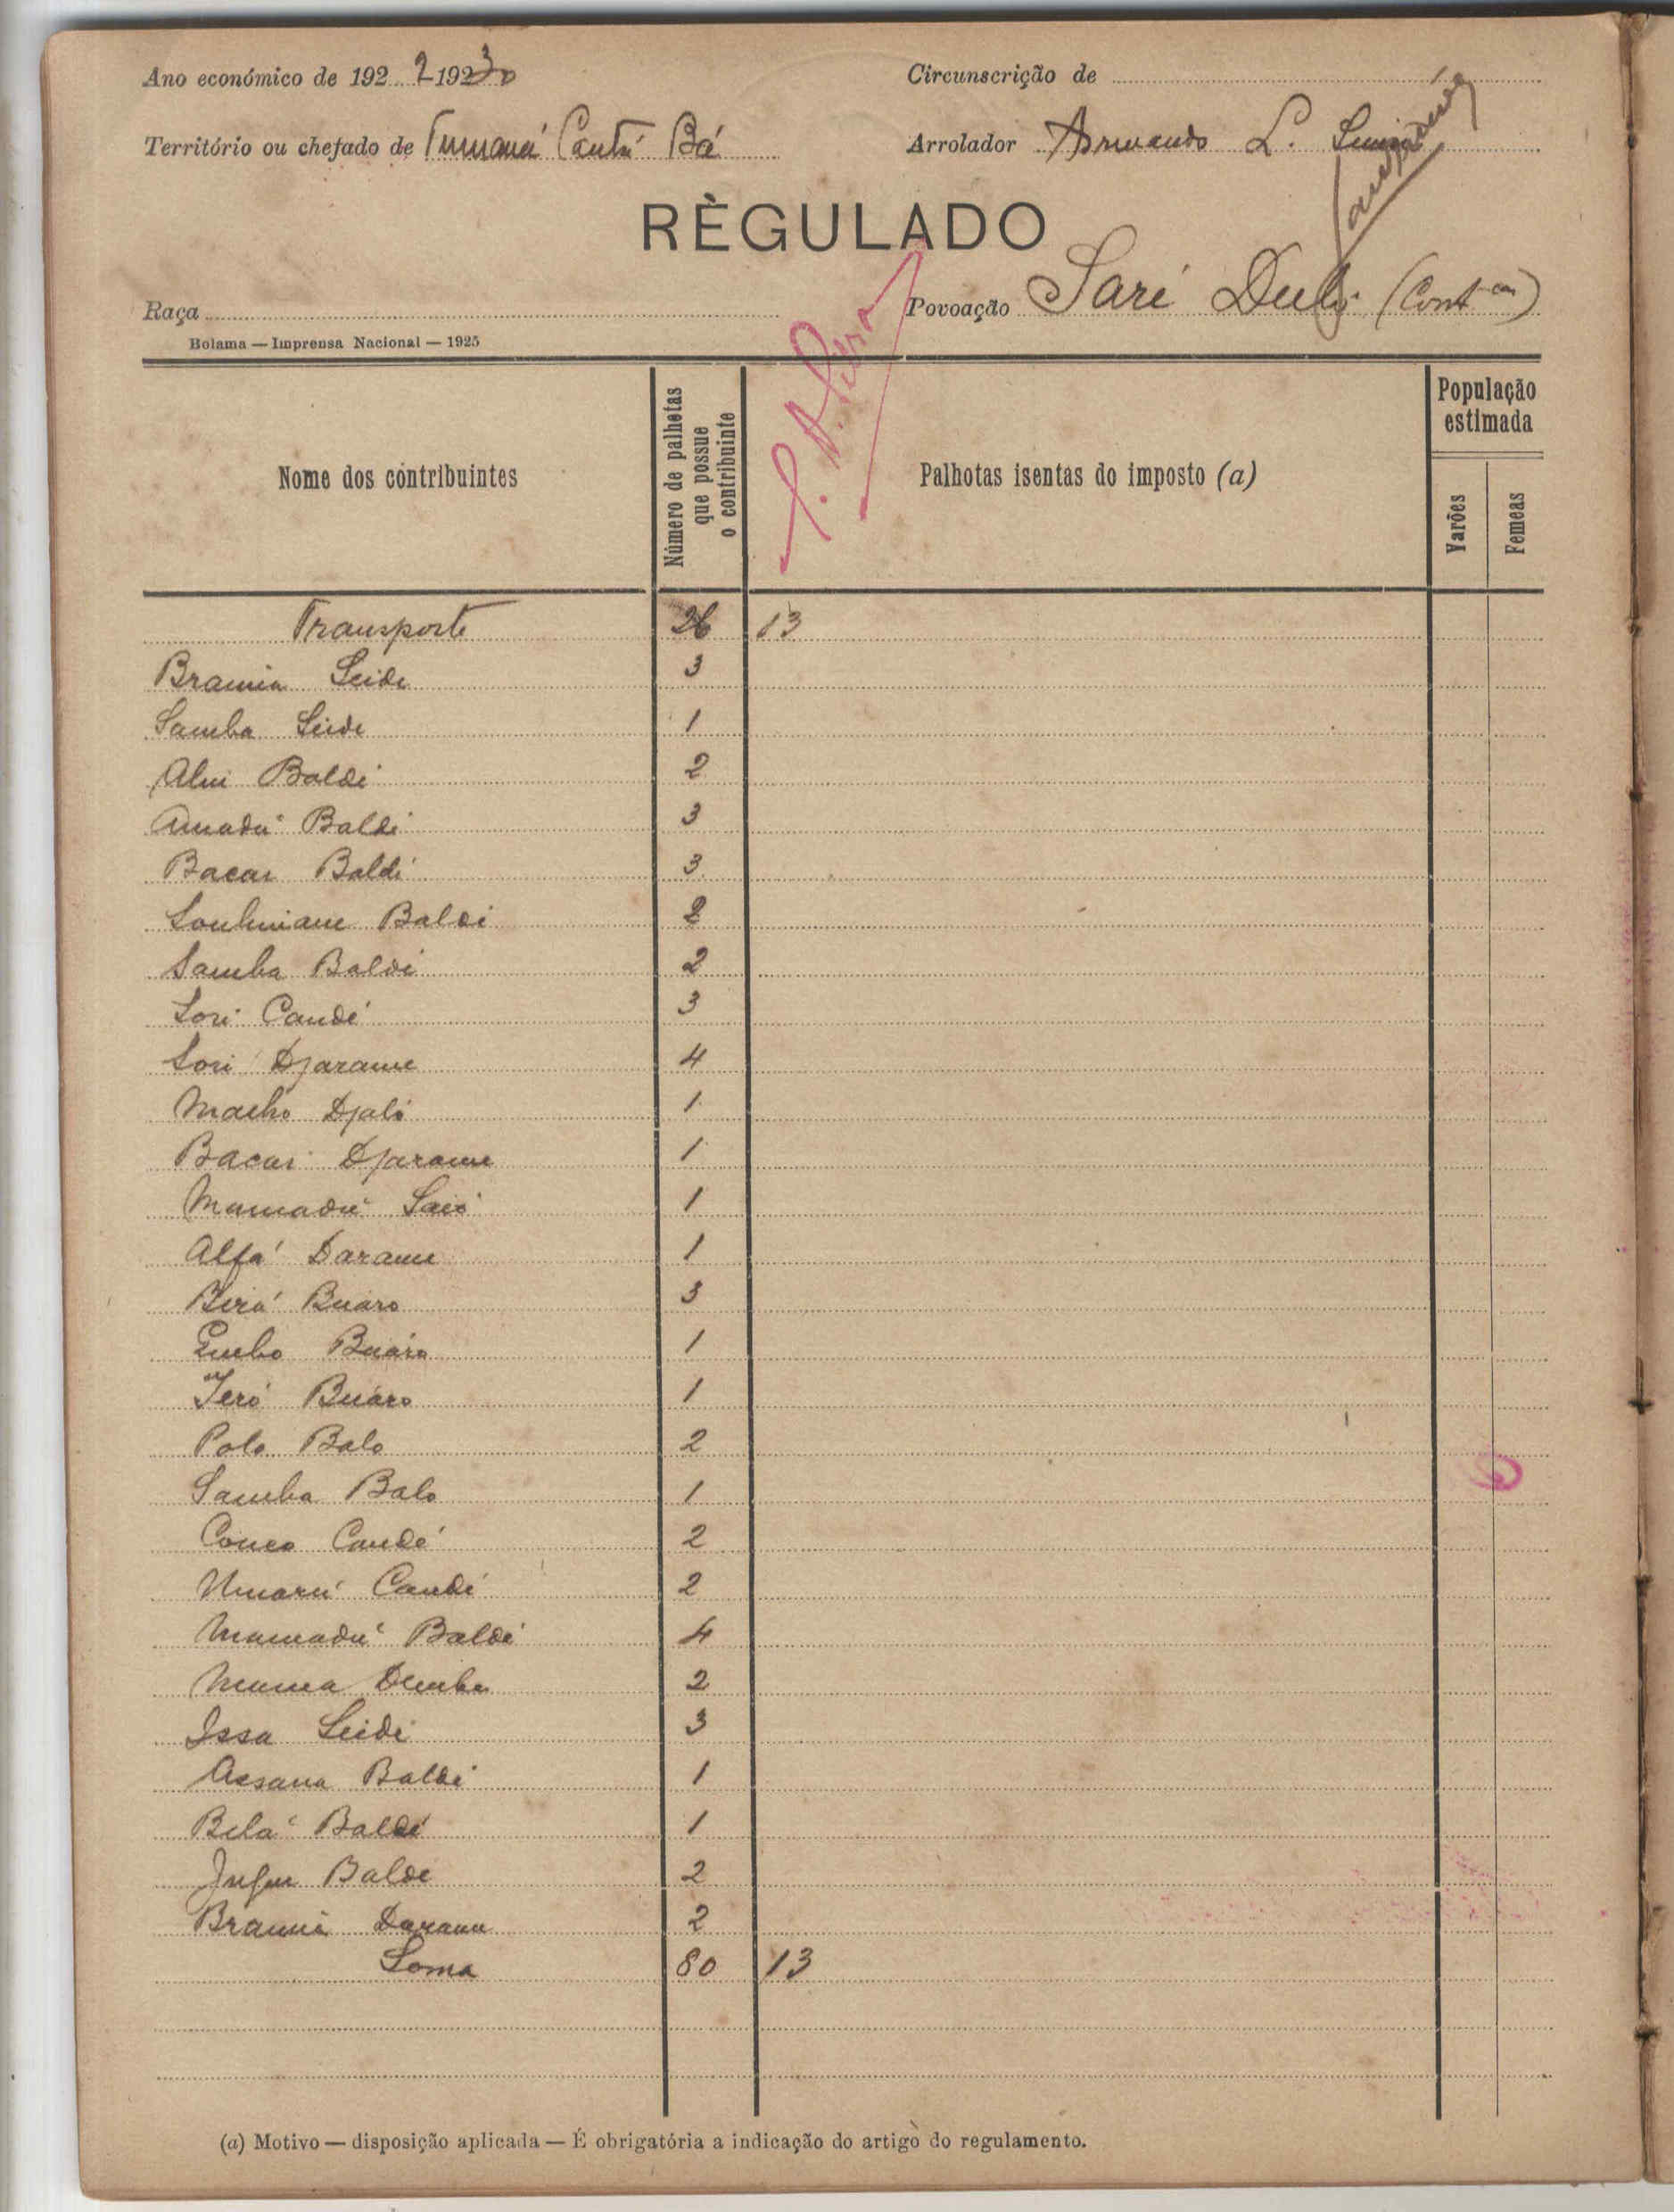 Ano económico de 192 2-1930
Circunscrição de
Território ou chefado de Tumaná Cantú Bá
Arrolador Armando L.
RÈGULADO
Raça
Povoação Saré Dulo (Cont am)
Bolama — Imprensa Nacional — 1925
Nome dos contribuintes
Número de palhetas que possue o contribuinte
Palhotas isentas do imposto (a)
População estimada
Varões
Femeas
Transporte 26 13
Braima Seide 3
Samba Seide 1
Baldé 2
Amadú Baldé 3
Bacar Baldé 3
Souleimane Baldé 2
Samba Baldé 2
Sori Candé 3
Sori Djarame 4
Macho Djaló 1
Bacar Djarame 1
Mamadú 1
Alfá Darame 1
Buaro 3
Buaro 1
Ieró Buaro 1
Polo Balo 2
Samba Balo 1
Couco Candé 2
Umarú Candé 2
Mamadú Baldé 4
Demba 2
Issa Seidi 3
Assana Baldé 1
Belá Baldé 1
Baldé 2
Braima Darame 2
Soma 80 13
(a) Motivo — disposição aplicada — É obrigatória a indicação do artigo do regulamento.